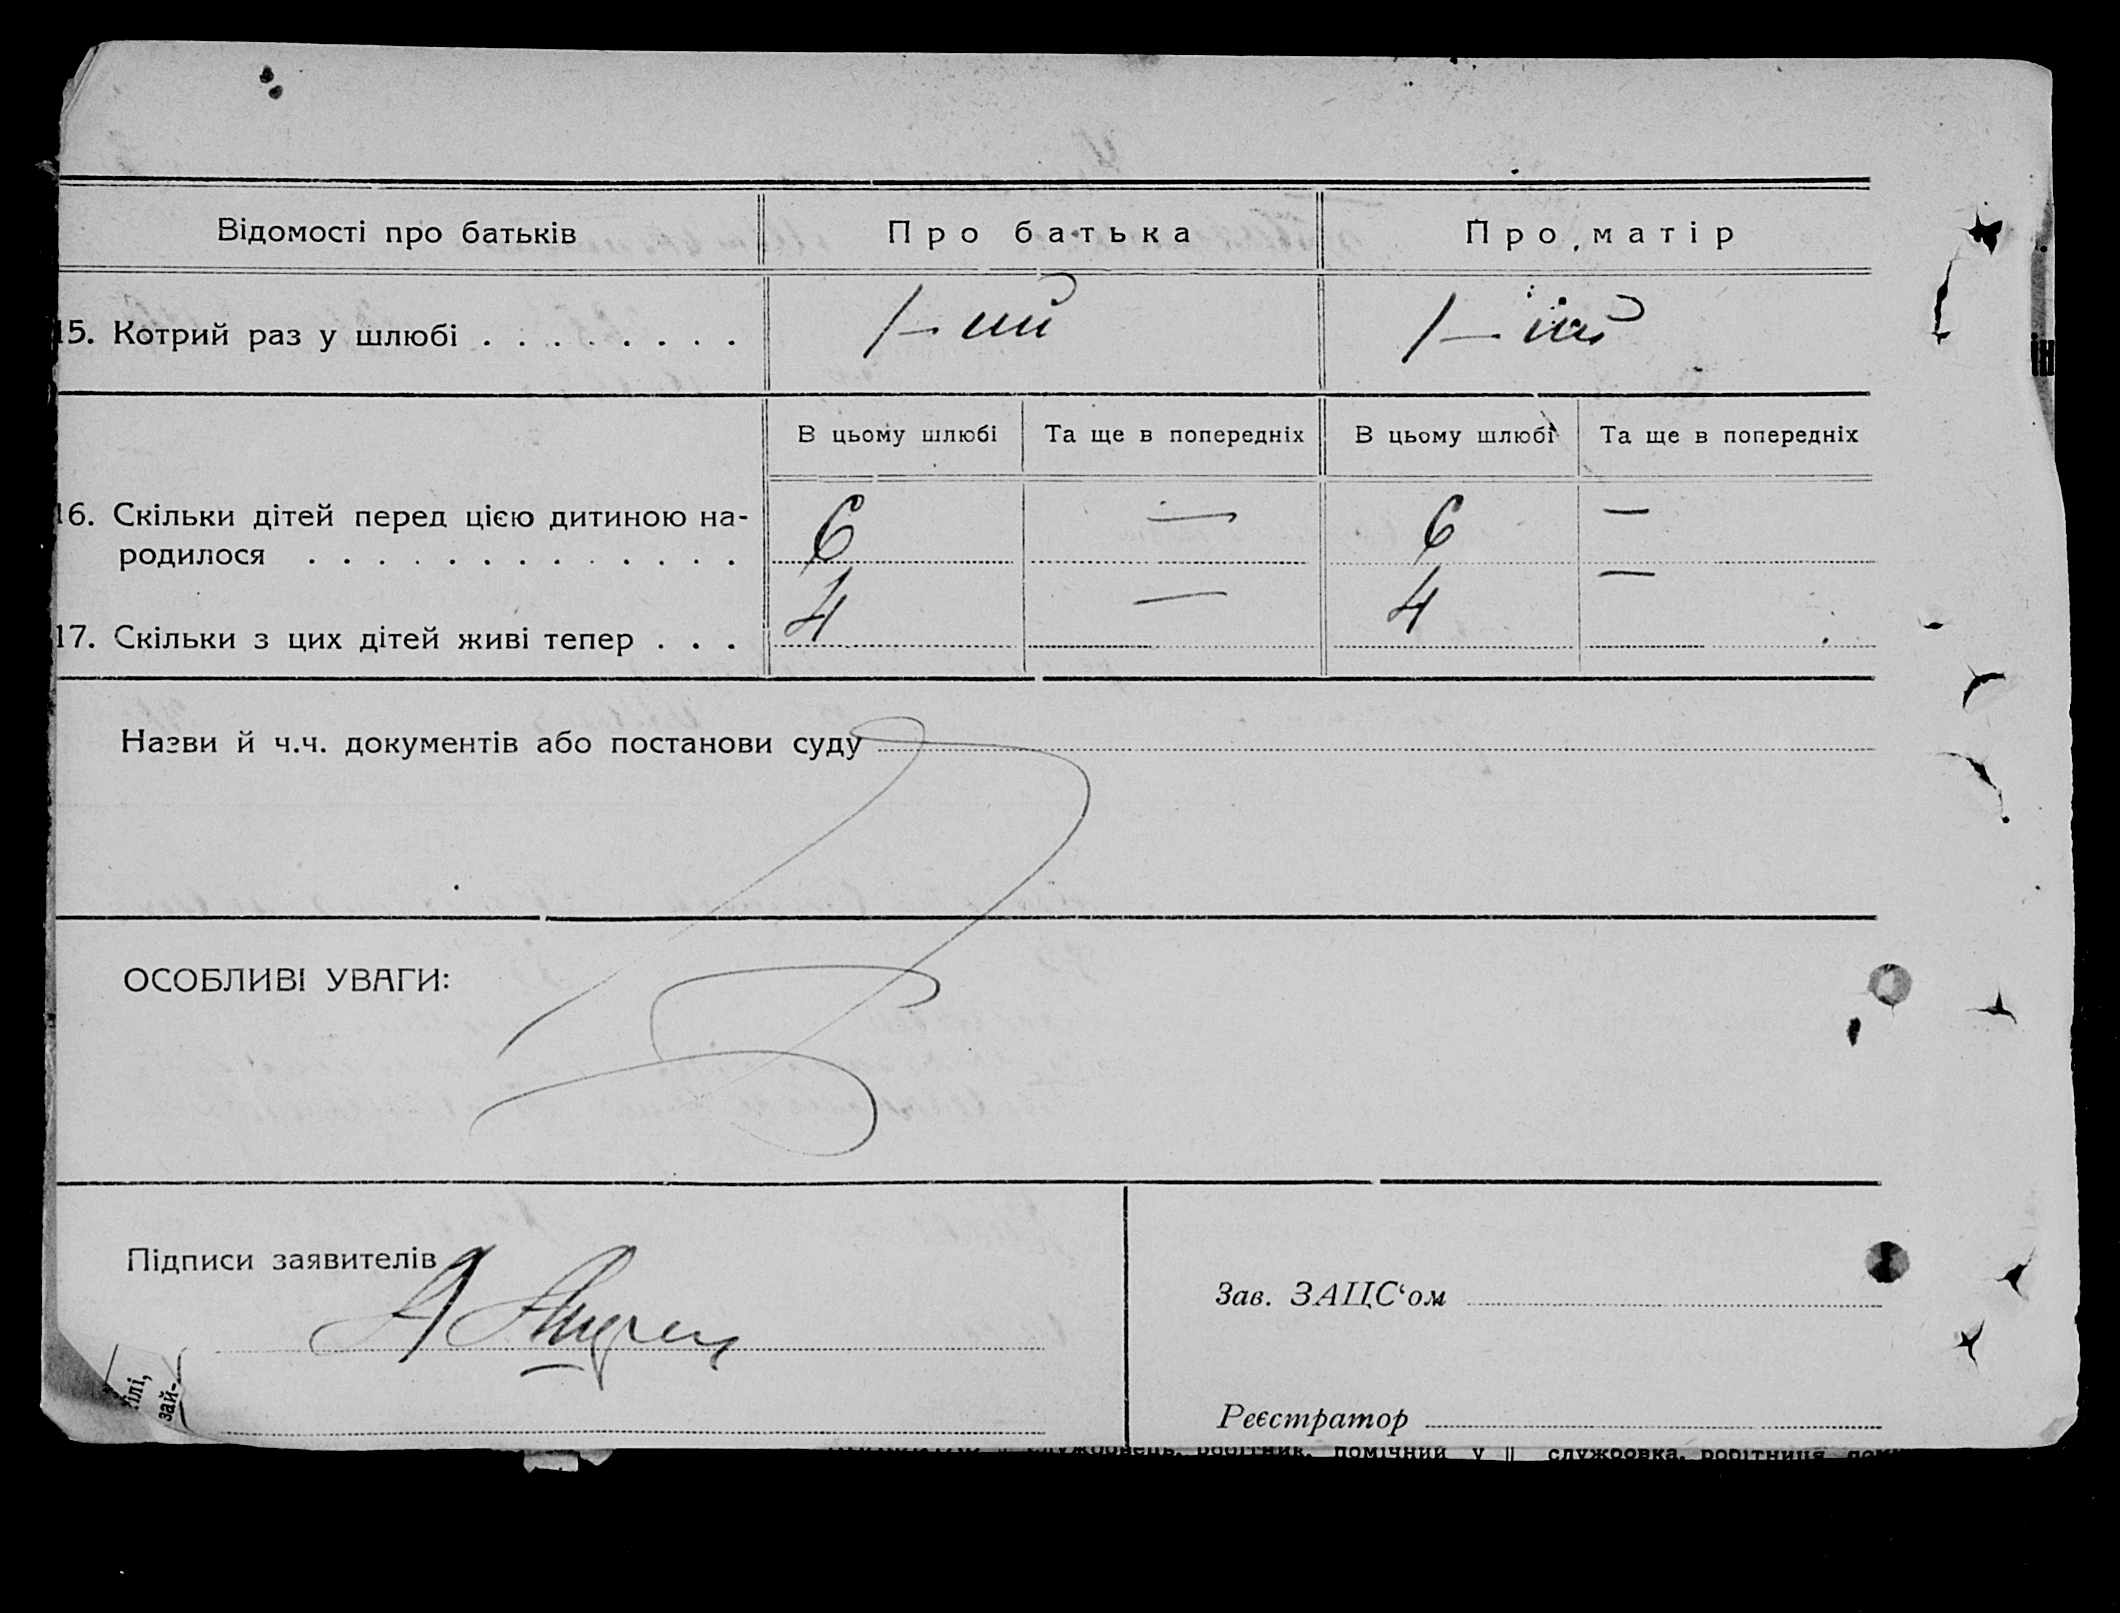 Відомості про батьків Про батька Про матір
15. Котрий раз у шлюбі . . . . . . . . 1-ий 1-ий
В цьому шлюбі Та ще в попередніх В цьому шлюбі Та ще в попередніх
16. Скільки дітей перед цією дитиною на-
родилося . . . . . . . . . . . . . 6 — 6 —
17. Скільки з цих дітей живі тепер . . . 4 — 4 —
Назви й ч.ч. документів або постанови суду
ОСОБЛИВІ УВАГИ:
Підписи заявителів
Зав. ЗАЦС‘ом
Реєстратор
ілі,
зай-
службовець, робітник, помічний у службовка, робітниця
ін